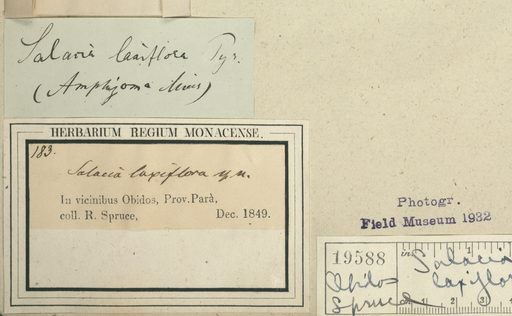 Salacia laxiflora
HERBARIUM REGIUM MONACENSE.
183.
Salacia laxiflora
In vicinibus Obidos, Prov. Parà,
coll. R. Spruce, Dec. 1849.
Photogr.
Field Museum 1932
19588
Salacia
Obidos laxiflor
Spruce 1 2 3 4